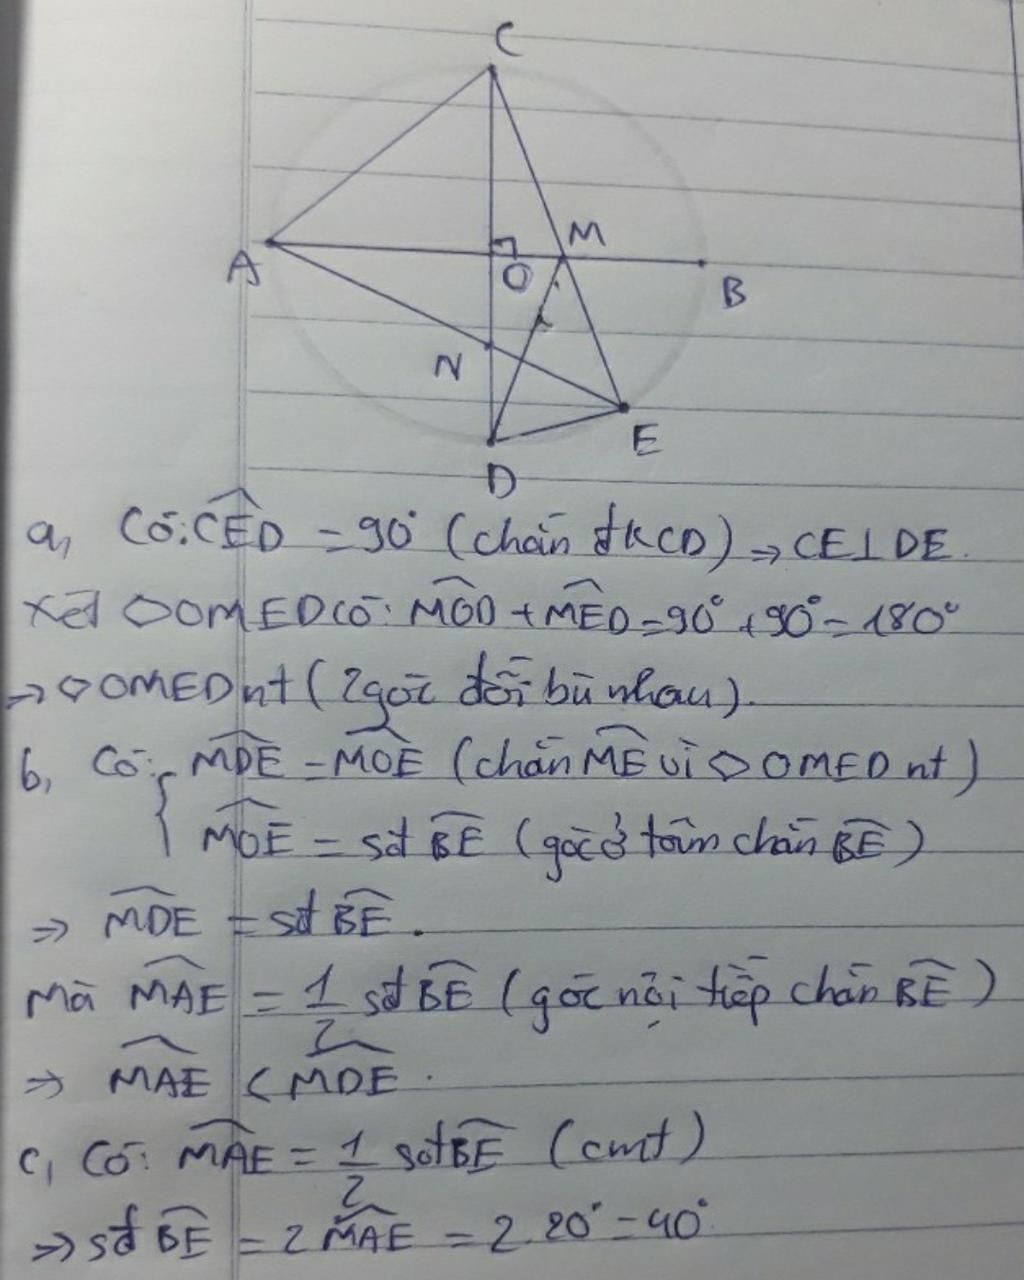 C
A
O
M
B
N
E
D
a, Có: CED = 90° (chắn đk CD) ⇒ CE⊥DE.
Xét ◇OMED có: MOD + MED = 90° + 90° = 180°
⇒ ◇OMED nt (2 góc đối bù nhau).
b, Có: MDE = MOE (chắn ME vì ◇OMED nt)
MOE = sđ BE (góc ở tâm chắn BE)
⇒ MDE = sđ BE.
Mà MAE = 1/2 sđ BE (góc nội tiếp chắn BE)
⇒ MAE < MDE.
c, Có: MAE = 1/2 sđ BE (cmt)
⇒ sđ BE = 2 MAE = 2.20° = 40°